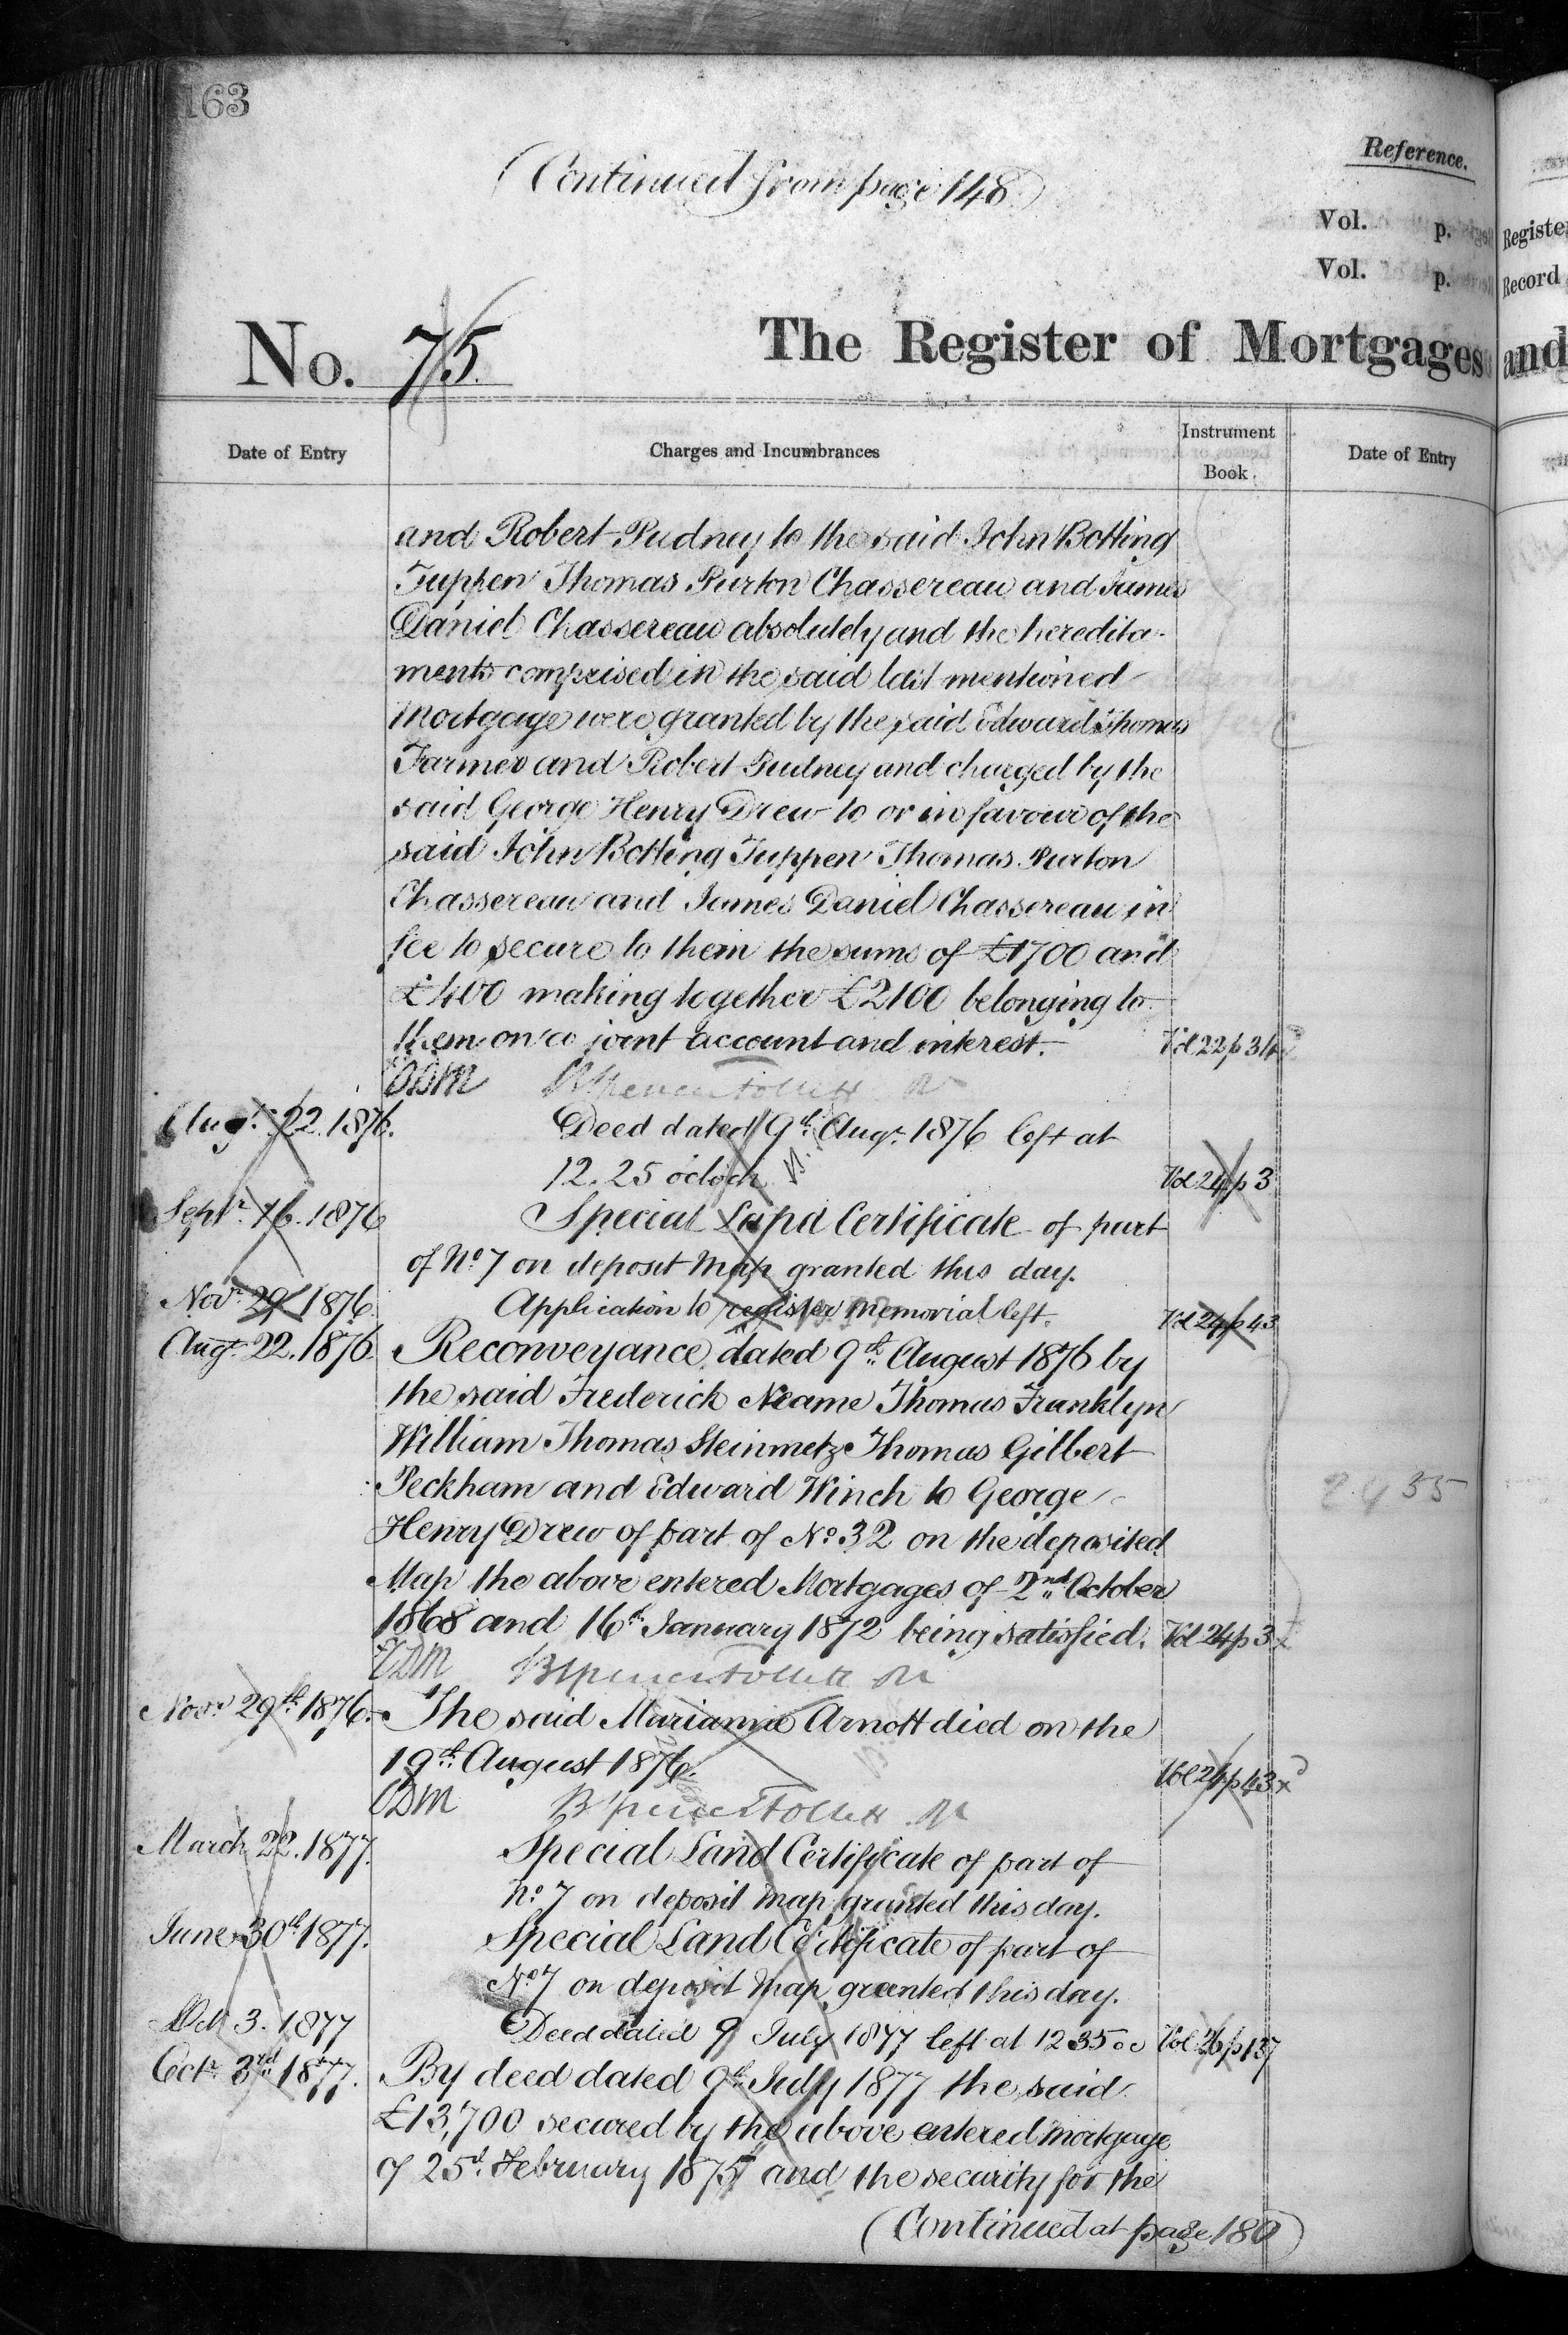 163
(Continued from page 148)
Reference.
Vol. p.
Vol. p.
Register
Record
No. 75.
The Register of Mortgages and
Date of Entry
Charges and Incumbrances
Instrument Book.
Date of Entry
and Robert Pudney to the said John Botting
Tuppen Thomas Purton Chassereau and James
Daniel Chassereau absolutely and the heredita-
ments comprised in the said last mentioned
Mortgage were granted by the said Edward Thomas
Farmer and Robert Pudney and charged by the
said George Henry Drew to or in favour of the
said John Botting Tuppen Thomas Purton
Chassereau and James Daniel Chassereau in
fee to secure to them the sums of £1700 and
£400 making together £2100 belonging to
them on a joint account and interest. Vol 22 p 314
Augt. 22. 1876. Deed dated 9th Augt. 1876 left at
12.25 oclock Vol 24 p 3
Septr. 16. 1876 Special Land Certificate of part
of No 7 on deposit Map granted this day.
Novr 29 1876. Application to register memorial left. Vol 24 p 43
Augt. 22. 1876. Reconveyance dated 9th August 1876 by
the said Frederick Neame Thomas Franklyn
William Thomas Steinmetz Thomas Gilbert
Peckham and Edward Winch to George
Henry Drew of part of No 32 on the deposited
2435
Map the above entered Mortgages of 2nd October
1868 and 16th January 1872 being satisfied. Vol 24 p 3
Novr 29th 1876. The said Marianne Arnott died on the
19th August 1876. Vol 24 p 43
March 22. 1877. Special Land Certificate of part of
No 7 on deposit Map granted this day.
June 30th 1877. Special Land Certificate of part of
No 7 on deposit Map granted this day.
Oct 3. 1877 Deed dated 9 July 1877 left at 12 35 oc Vol 26 p 137
Octr. 3rd 1877. By deed dated 9th July 1877 the said
£13,700 secured by the above entered Mortgage
of 25th February 1875 and the security for the
(Continued at page 180)